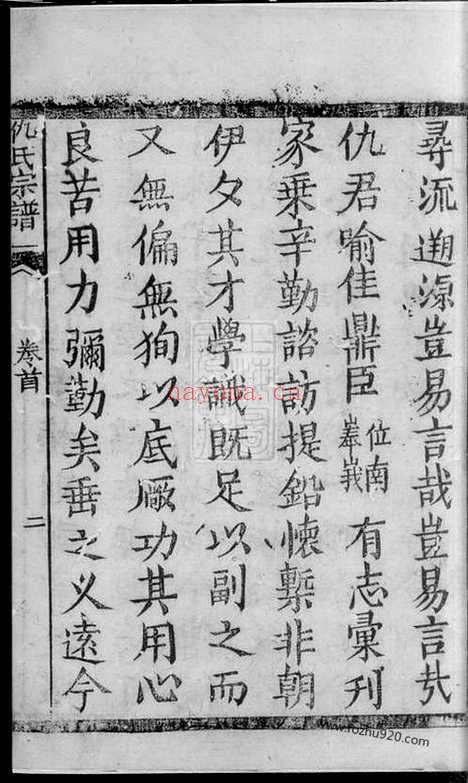 尋流遡源豈易言哉豈易言哉
仇君喻佳鼎臣位南峯峩有志彙刊
家乗辛勤諮訪提鉛懐槧非朝
伊夕其才學識既足以副之而
又無偏無狥以底厥功其用心
良苦用力彌勤矣垂之乆遠今
仇氏宗譜
卷首
二
dayona.cn
www.rozhu920.com